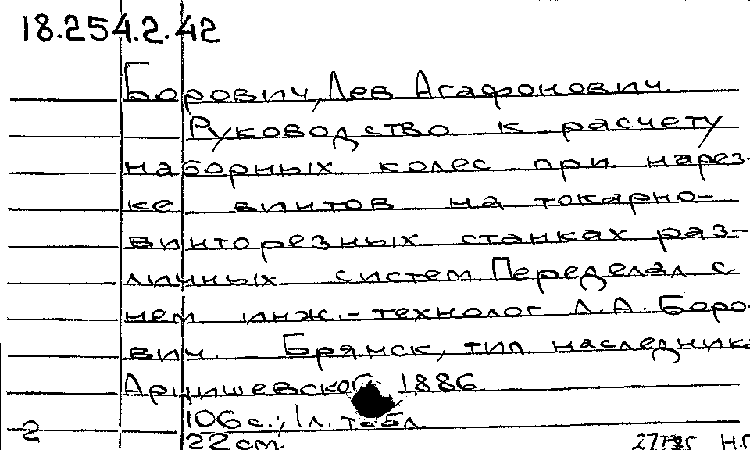 18.254.2.42
Борович, Лев Агафонович.
Руководство к расчету
наборных колес при нарез-
ке винтов на токарно-
винторезных станках раз-
личных систем. Переделал с
нем. инж.-технолог Л.А. Боро-
вич. – Брянск, тип. наследник.
1886.
106 с.; 1 л. табл.
2
22 см.
Н.С